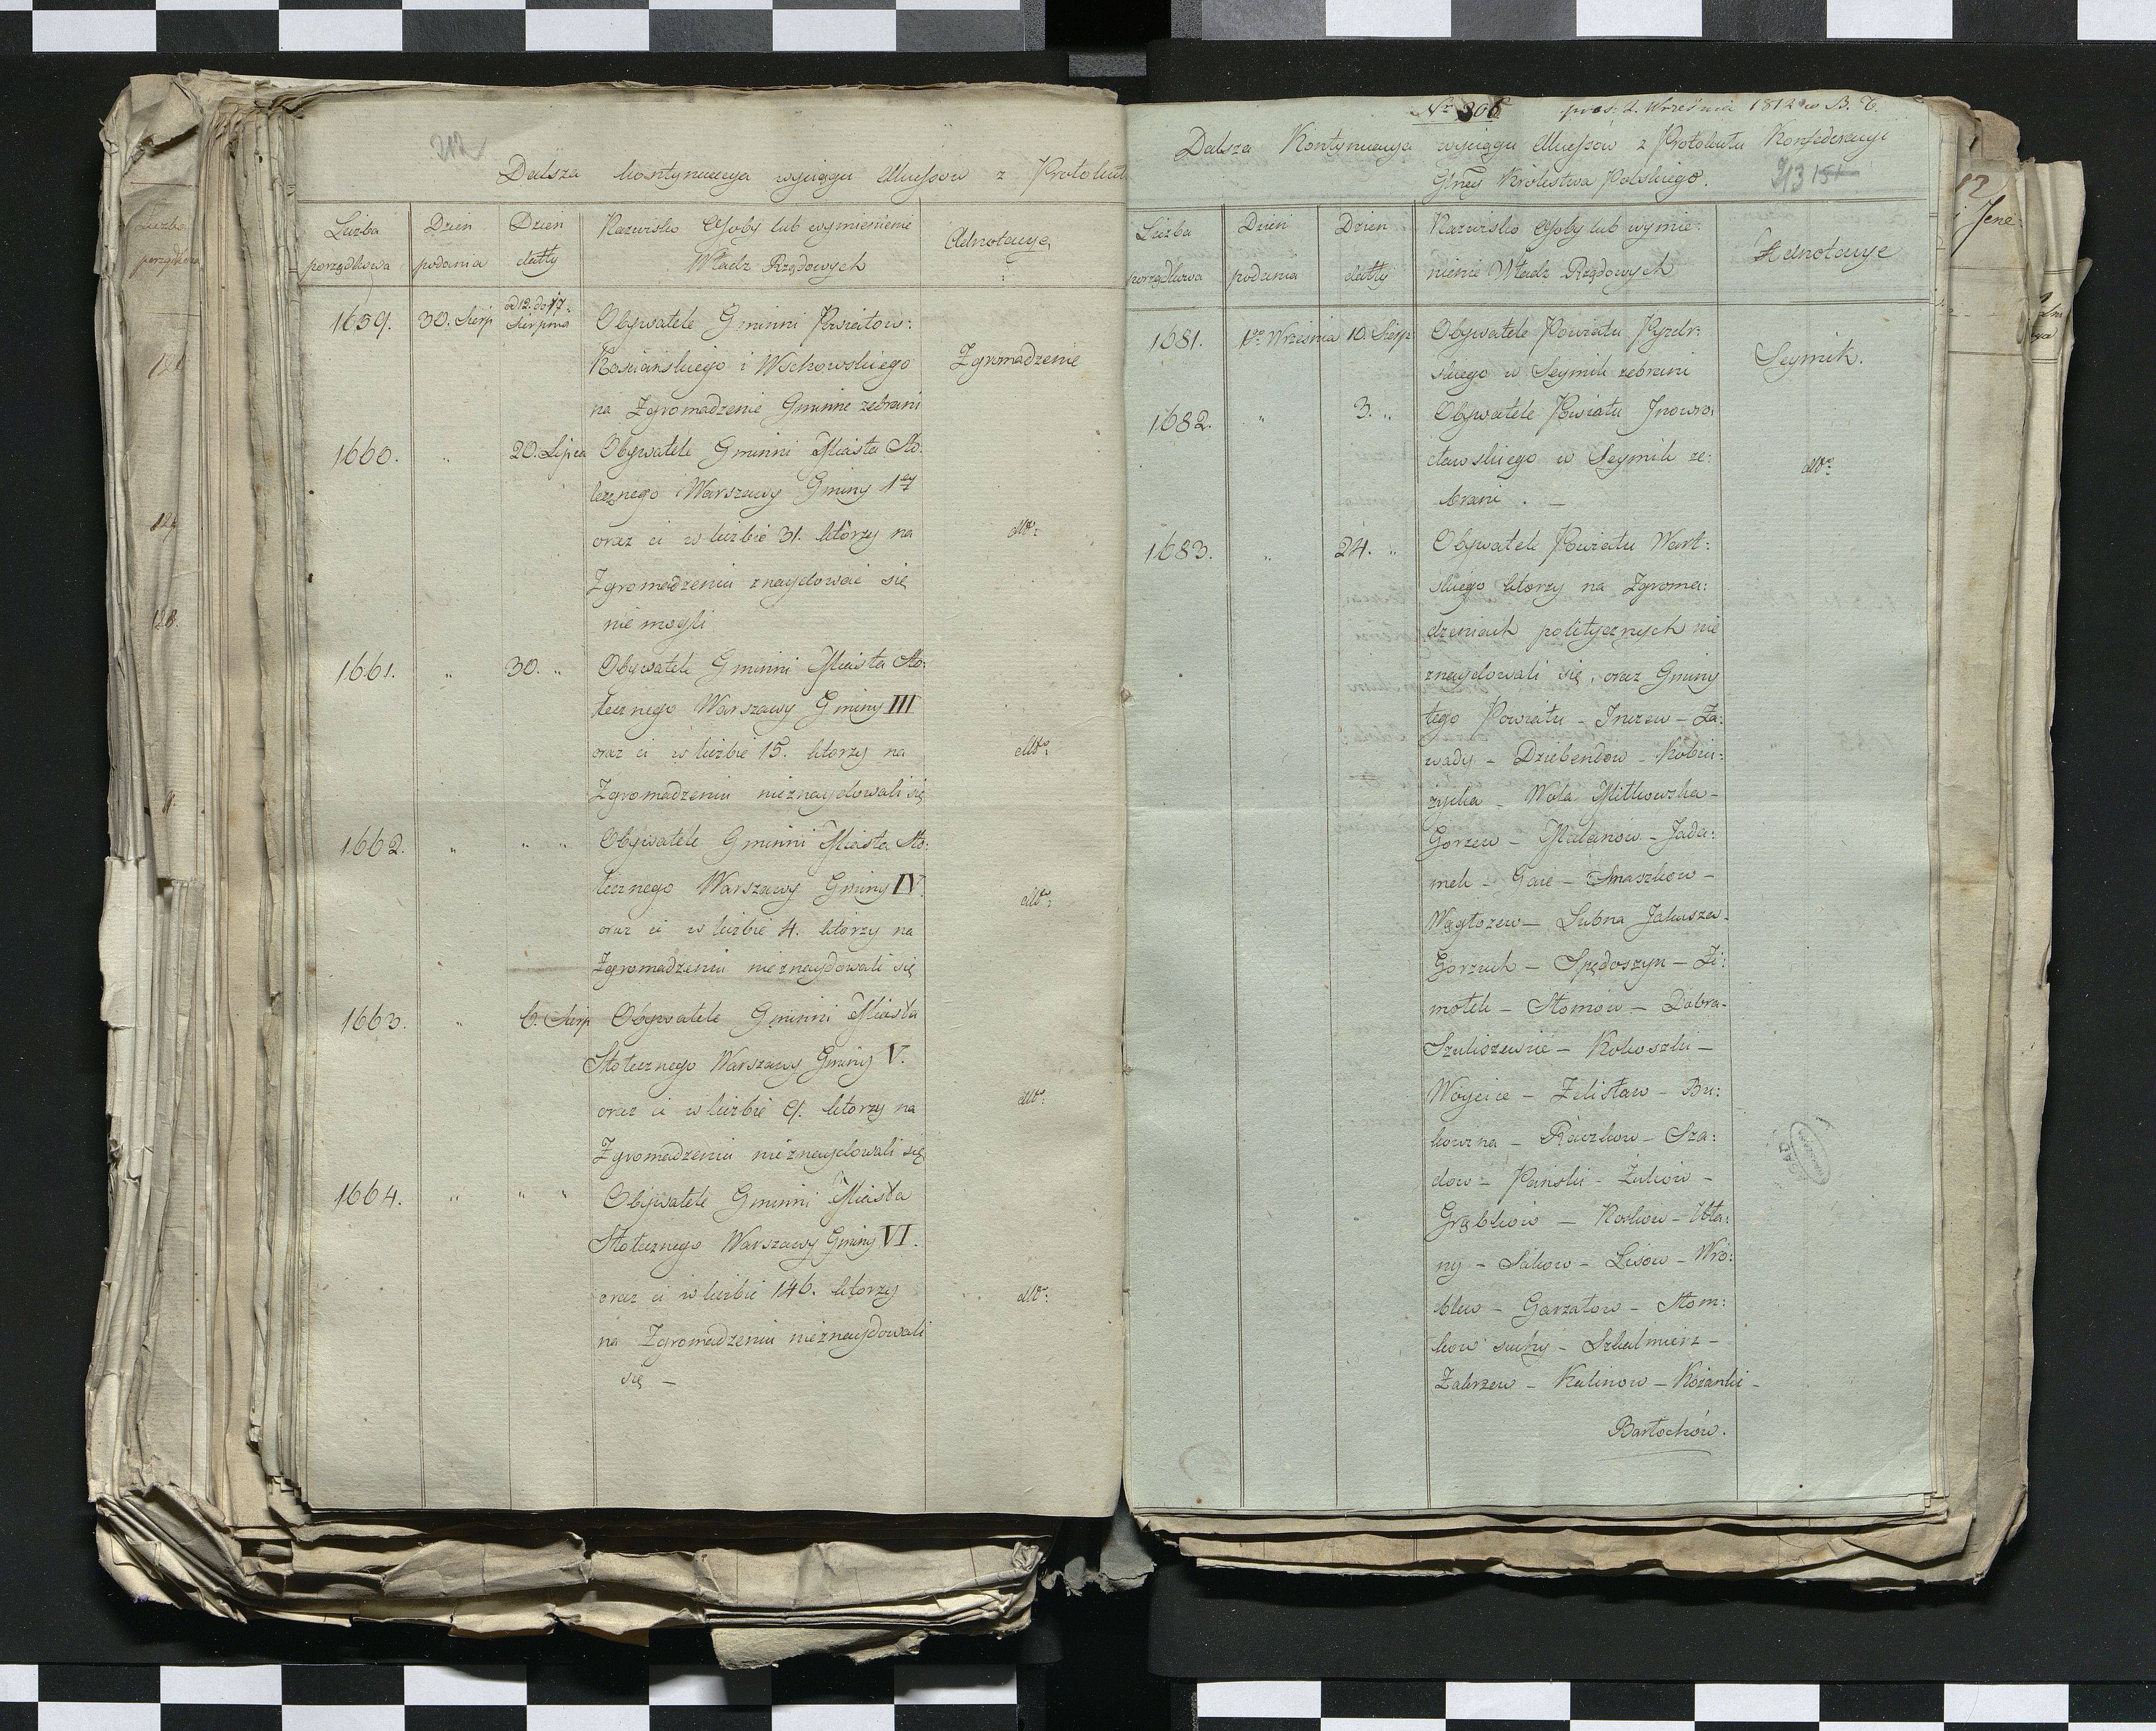 212
Dalsza kontynuacya wyciągu Akcessow z Protokuł
Liczba porządkowa
Dzień podania
Dzień datty
Nazwisko Osoby lub wymienienie Władz Rządowych
Adnotacye
1659. 30. Sierp od 12. do 17. Sierpnia Obywatele Gminni Powiatow:
Kościańskiego i Wschowskiego Zgromadzenie
na Zgromadzenie Gminne zebrani
1660. " 20. Lipca Obywatele Gminni Miasta Sto:
łecznego Warszawy Gminy 1ey
oraz ci w liczbie 31. którzy na dtto:
Zgromadzeniu znaydować się
nie mogli
1661. " 30. " Obywatele Gminni Miasta Sto:
łecznego Warszawy Gminy III
oraz ci w liczbie 15. którzy na dtto:
Zgromadzeniu nieznaydowali się
1662. " " " Obywatele Gminni Miasta Sto:
łecznego Warszawy Gminy IV
oraz ci w liczbie 4. którzy na dtto:
Zgromadzeniu nieznaydowali się
1663. " 6. Sierp Obywatele Gminni Miasta
Stołecznego Warszawy Gminy V.
oraz ci w liczbie 9. którzy na dtto:
Zgromadzeniu nieznaydowali się
1664. " " " Obywatele Gminni Miasta
Stołecznego Warszawy Gminy VI.
oraz ci w liczbie 146. którzy dtto:
na Zgromadzeniu nieznaydowali
się —
Nr 306 pres: 2. Września 1812
Dalsza Kontynuacya wyciągu Akcessów z Protokułu Konfederacyi
Glney Królestwa Polskiego.
213 151
Liczba porządkowa
Dzień podania
Dzień datty
Nazwisko Osoby lub wymie:
nienie Władz Rządowych
Adnotacye
1681. 1go Września 10. Sierp Obywatele Powiatu Pyzdr:
skiego w Seymik zebrani Seymik.
1682. " 3. " Obywatele Powiatu Inowro:
cławskiego w Seymik ze: dtto:
brani. —
1683. " 24. " Obywatele Powiatu Wart:
skiego którzy na Zgroma:
dzeniach politycznych nie
znaydowali się, oraz Gminy
tego Powiatu - Inczew - Za:
wady - Dziebendow - Kobie:
życka - Wola Miłkowska -
Gorzew - Malanow - Jada:
mek - Gaie - Smaszkow -
Wągłczew - Lubna Jakusze -
Gorzuch - Spędoszyn - Zi:
motek - Stomow - Dabra -
Szuliszewice - Kokoszki -
Woycice - Zelisław - Bu:
kowzna - Raczkow - Sza:
dow - Pański - Żukow -
Grąbkow - Kowkow -
ny - Sakow - Lisow - Wró:
blew - Garzałow - Słom:
kow suchy - Szkalmierz -
Zakrzew - Kalinow - Kożanki -
Bartochów.